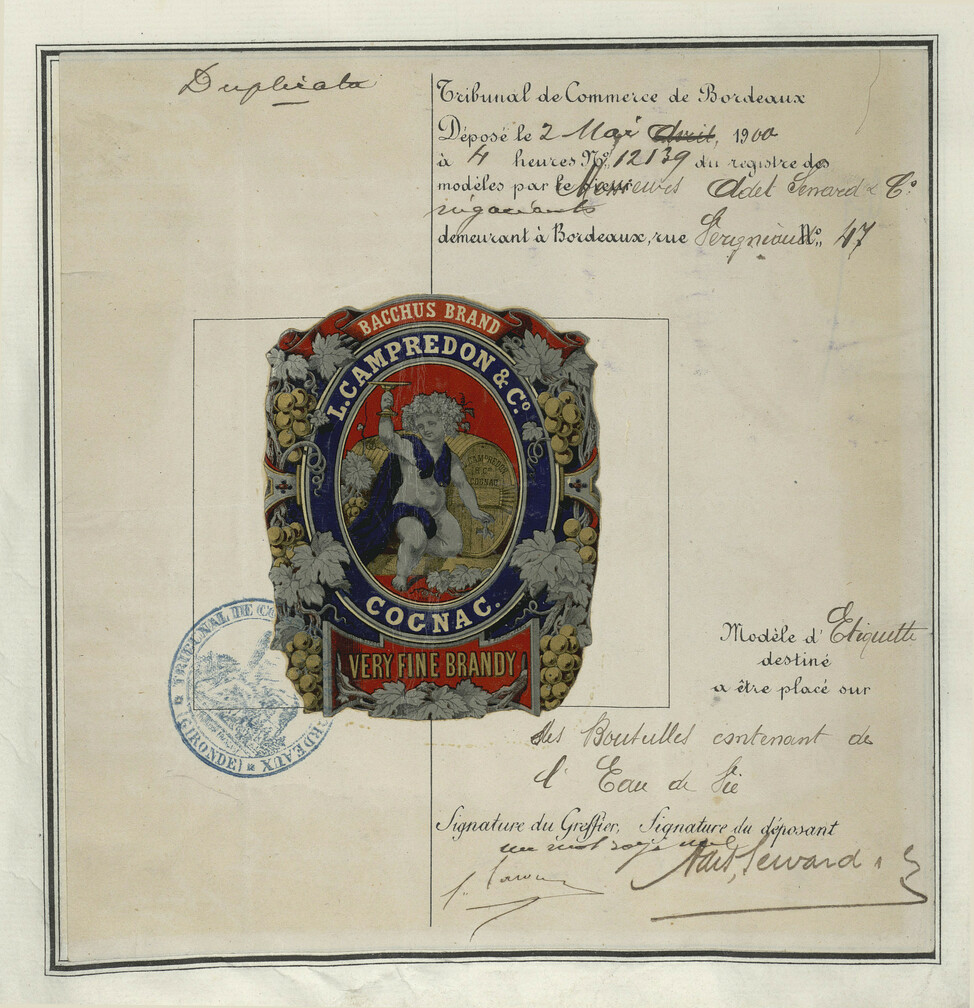 Duplicata
Tribunal de Commerce de Bordeaux
Déposé le 2 Mai Avril, 1900
à 4 heures N° 12139 du registre des
modèles par le Sieur Messieurs Adet Seward & C°
négociants
demeurant à Bordeaux, rue N° 47
BACCHUS BRAND
L. CAMPREDON & C°
CAMPREDON
& C°
COGNAC
COGNAC.
VERY FINE BRANDY
TRIBUNAL DE CO RDEAUX
(GIRONDE)
Modèle d'Etiquette
destiné
a être placé sur
des Bouteilles contenant de
l'Eau de Vie
Signature du Greffier, Signature du déposant
un mot rayé nul
Adet, Seward & C